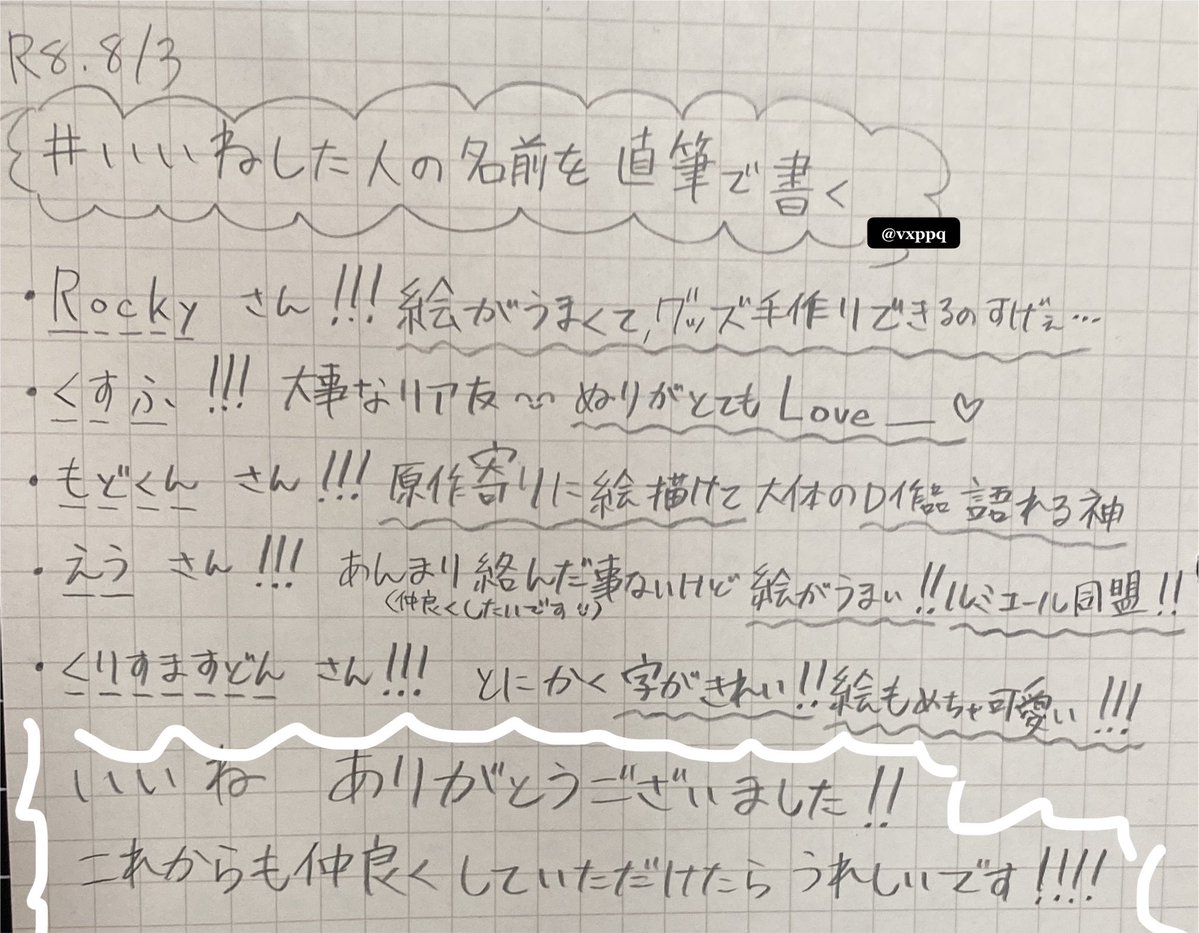 R8.8/3
#いいねした人の名前を直筆で書く
@vxppq
・Rocky さん!!! 絵がうまくて、グッズ手作りできるのすげぇ…
・くすふ!!! 大事なリア友〜 ぬりがとてもLove__♡
・もどくん さん!!! 原作寄りに絵描けて大体のD作品語れる神
・えう さん!!! あんまり絡んだ事ないけど絵がうまい!!ルミエール同盟!!
(仲良くしたいです)
・くりすますどん さん!!! とにかく字がきれい!!絵もめちゃ可愛い!!!
いいね ありがとうございました!!
これからも仲良くしていただけたらうれしいです!!!!